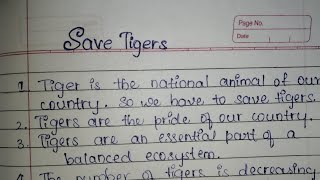 Page No.
Date
Save Tigers
1. Tiger is the national animal of our
country. So we have to save tigers.
2. Tigers are the pride of our country.
3. Tigers are an essential part of a
balanced ecosystem.
The number of tigers is decreasing